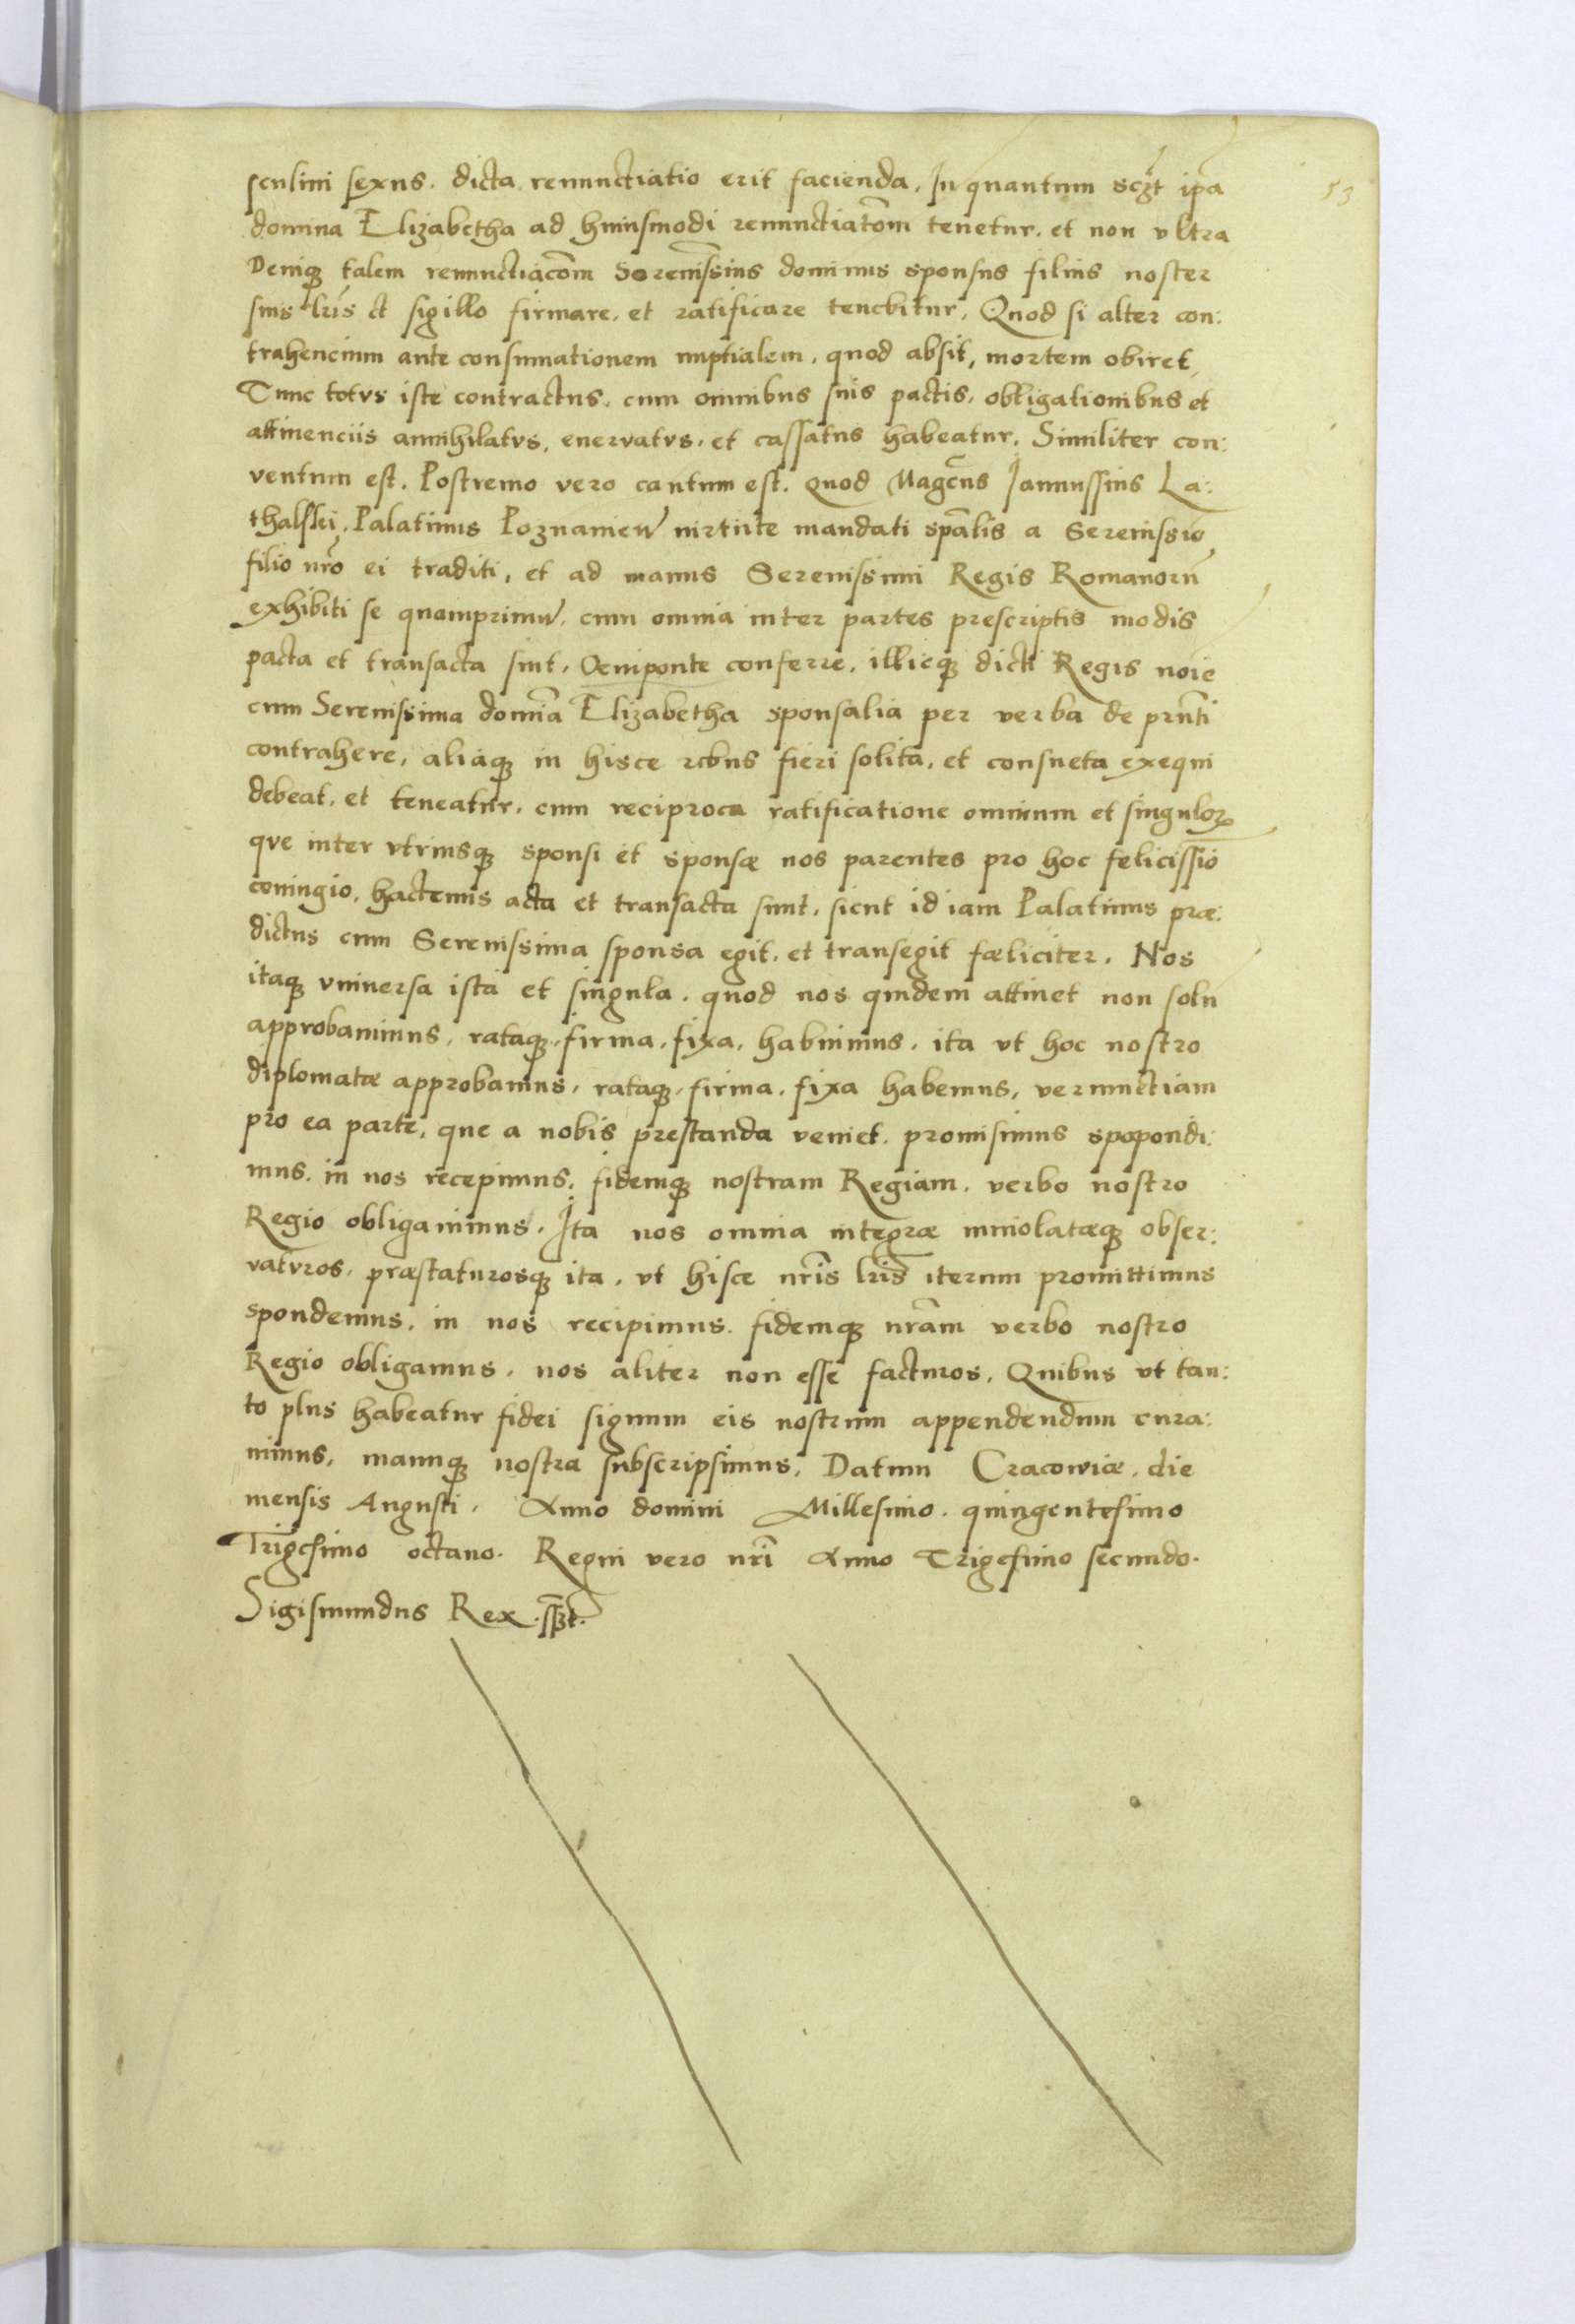 53
sculini sexus. dicta renunctiatio erit facienda, In quantum sczt ipa
domina Elizabetha ad huiusmodi renunctiatom tenetur. et non vltra
Deniq talem renunctiacom Serenissius dominus sponsus filius noster
suis lris et sigillo firmare. et ratificare tenebitur, Quod si alter con:
trahencium ante consumationem nuptialem, quod absit, mortem obiret,
Tunc totus iste contractus, cum omnibus suis pactis, obligationibus et
attinenciis annihilatus, enervatus, et cassatus habeatur, Similiter con:
ventum est. Postremo vero cautum est. quod Magcus Ianussius La:
thalski, Palatinus Poznanien virtute mandati spalis a Serenissio
filio nro ei traditi, et ad manus Serenissimi Regis Romanoru
exhibiti se quamprimu, cum omnia inter partes prescriptis modis
pacta et transacta sint, Oeniponte conferre, illicq dicti Regis noie
cum Serenissima domia Elizabetha sponsalia per verba de prnti
contrahere, aliaq in hisce rebus fieri solita, et consueta exequi
debeat, et teneatur, cum reciproca ratificatione omnium et singulor
que inter vtriusq sponsi et sponsæ nos parentes pro hoc felicissio
coniugio, hactenus acta et transacta sunt, sicut id iam Palatinus præ:
dictus cum Serenissima sponsa egit, et transegit fæliciter. Nos
itaq vniuersa ista et singula, quod nos quidem attinet non solu
approbauimus, rataq, firma, fixa, habuimus, ita vt hoc nostro
diplomatæ approbamus, rataq, firma, fixa habemus, verumctiam
pro ea parte, que a nobis prestanda veniet, promisimus spopondi:
mus, in nos recepimus, fidemq nostram Regiam, verbo nostro
Regio obligauimus, Ita nos omnia integræ inuiolatæq obser:
vaturos, præstaturosq ita, vt hisce nris lris iterum promittimus
spondemus, in nos recipimus, fidemq nram verbo nostro
Regio obligamus, nos aliter non esse facturos, Quibus vt tan:
to plus habeatur fidei signum eis nostrum appendendum cura:
uimus, manuq nostra subscripsimus, Datum Cracowiæ, die
mensis Augusti, Anno domini Millesimo, quingentesimo
Trigesimo octauo. Regni vero nri Anno Trigesimo secundo.
Sigismundus Rex sszt.